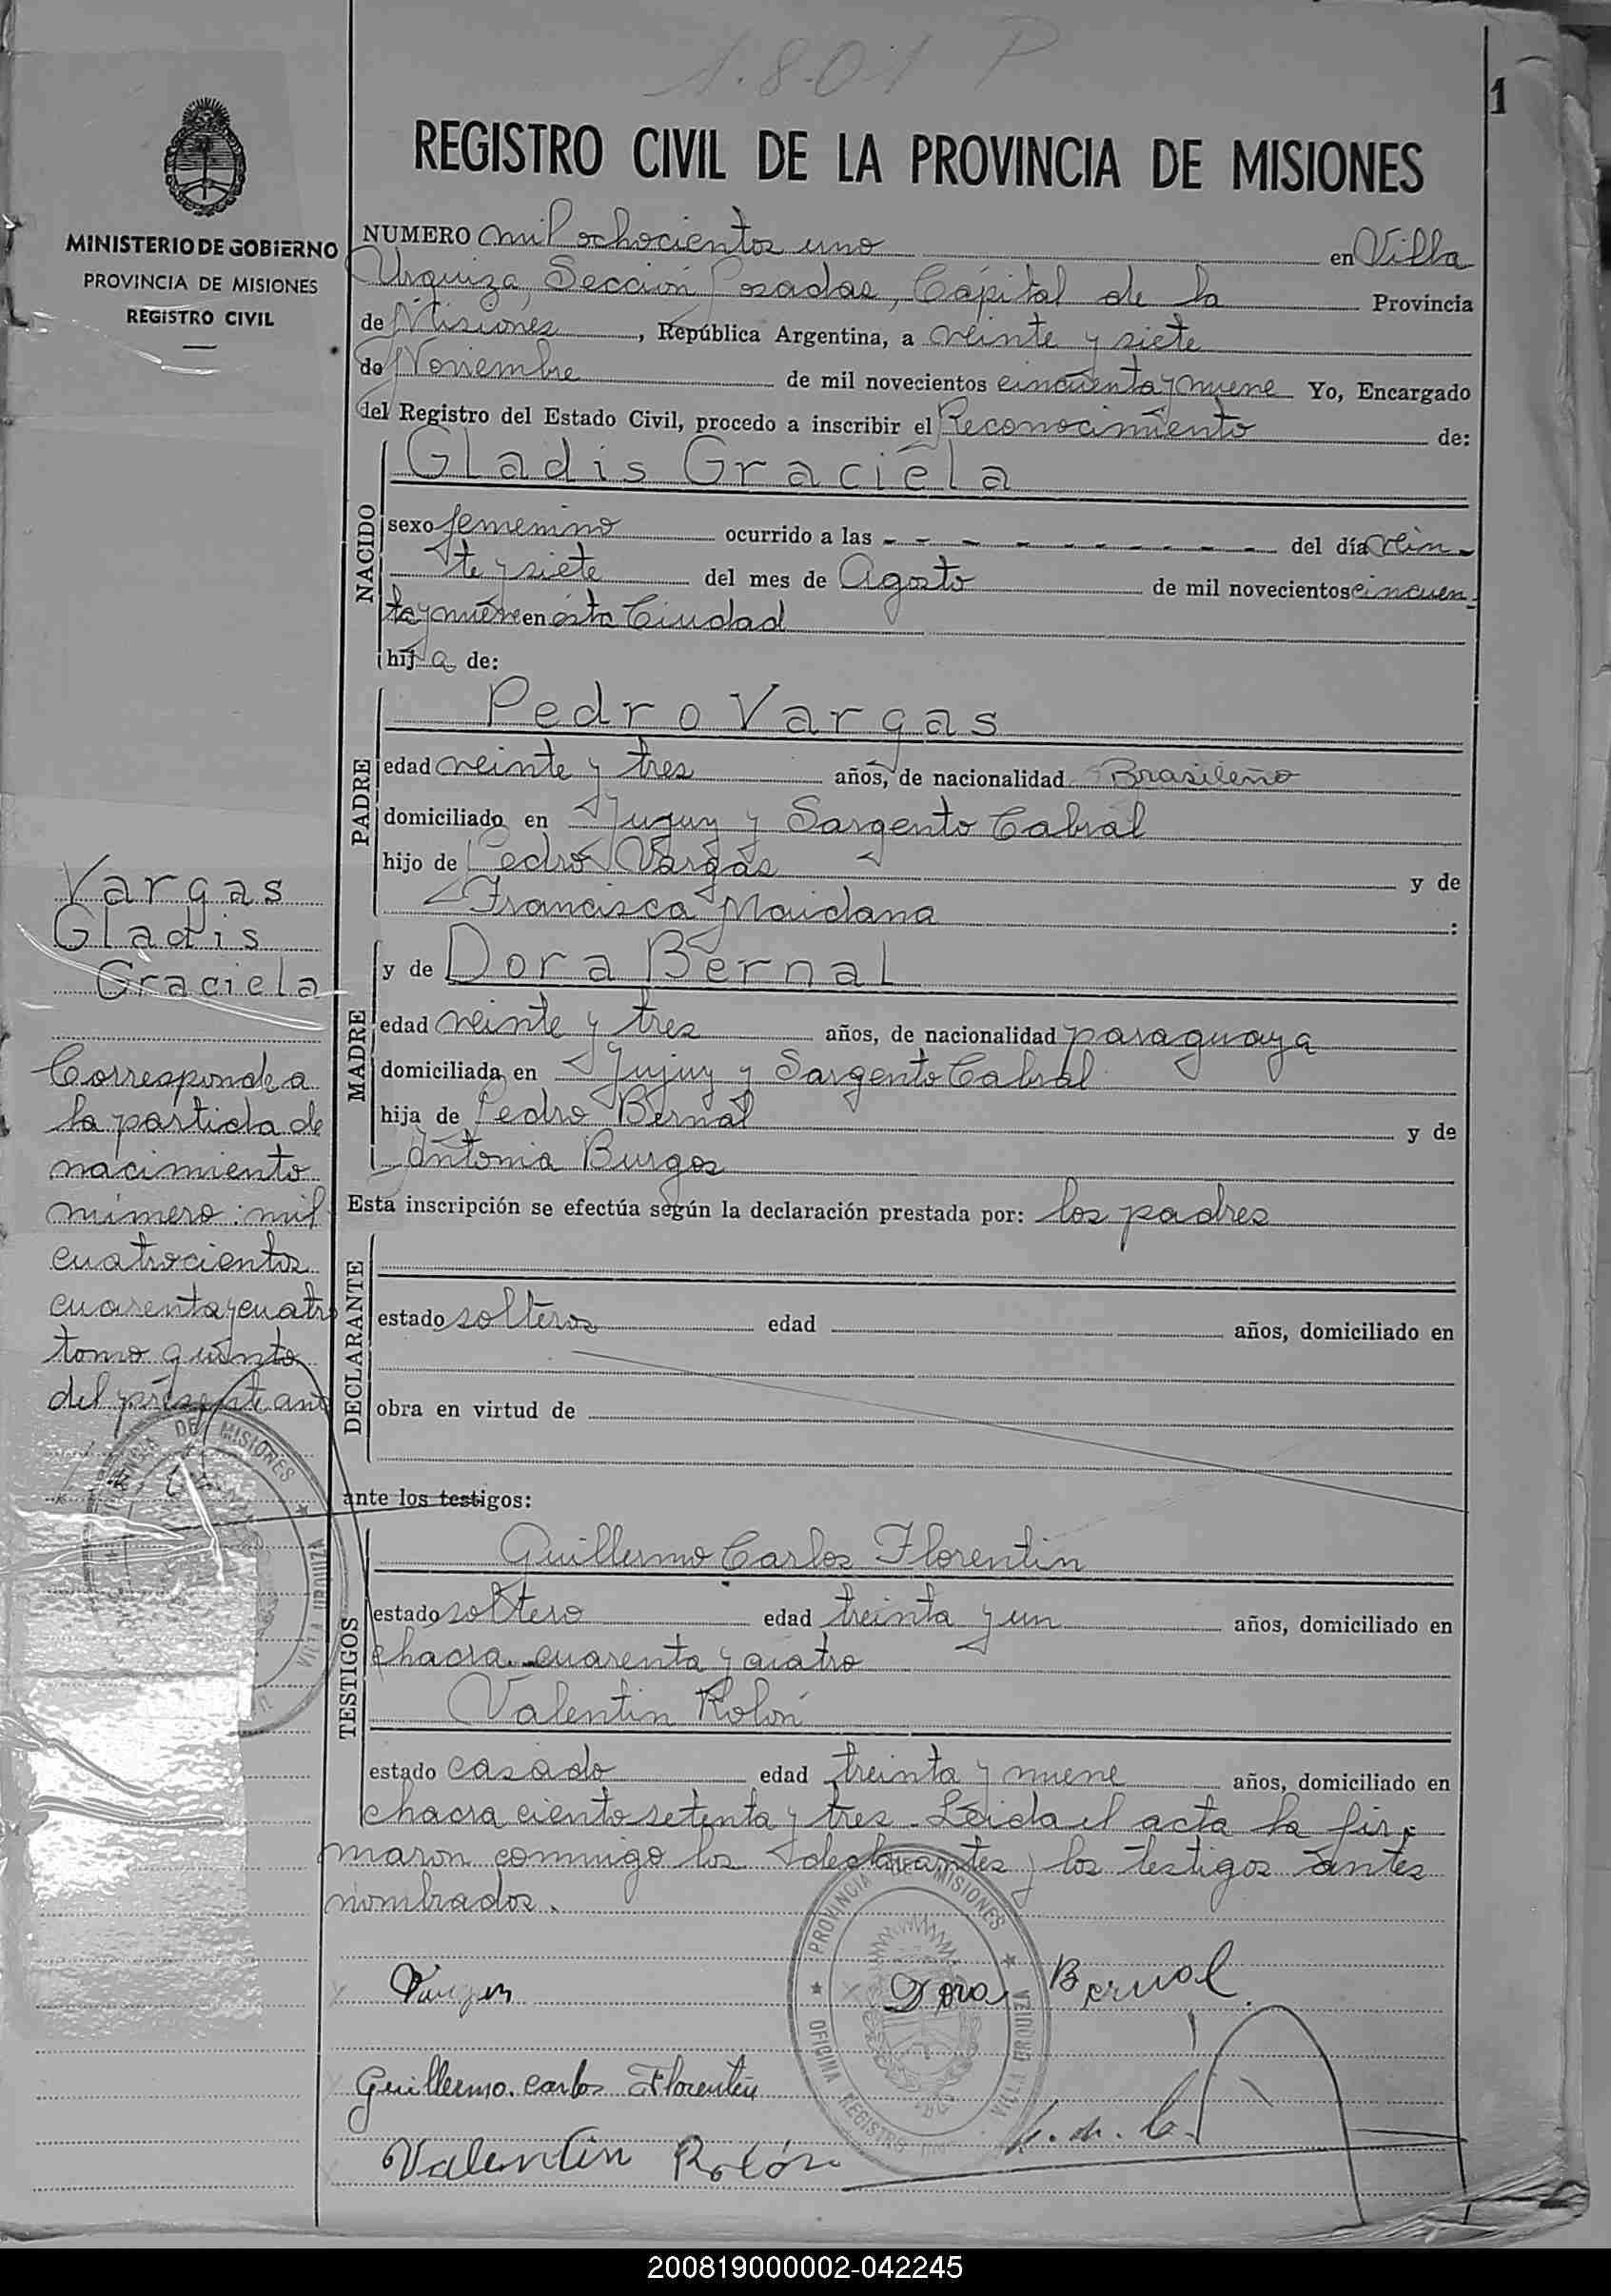 1.801 P
1
REGISTRO CIVIL DE LA PROVINCIA DE MISIONES
MINISTERIO DE GOBIERNO
PROVINCIA DE MISIONES
REGISTRO CIVIL
NUMERO mil ochocientos uno en Villa
Urquiza, Sección Posadas, Cápital de la Provincia
de Misiones, República Argentina, a veinte y siete
de Noviembre de mil novecientos cincuenta y nueve Yo, Encargado
del Registro del Estado Civil, procedo a inscribir el Reconocimiento de:
NACIDO
Gladis Graciela
sexo femenino ocurrido a las - - - - - - - - - del día vein-
te y siete del mes de Agosto de mil novecientos cincuen-
ta y nueve en ésta Ciudad
hija de:
PADRE
Pedro Vargas
edad veinte y tres años, de nacionalidad Brasileño
domiciliado en Jujuy y Sargento Cabral
hijo de Pedro Vargas y de
Francisca Maidana :
MADRE
y de Dora Bernal
edad veinte y tres años, de nacionalidad paraguaya
domiciliada en Jujuy y Sargento Cabral
hija de Pedro Bernal y de
Antonia Burgos
Esta inscripción se efectúa según la declaración prestada por: los padres
DECLARANTE
estado solteros edad años, domiciliado en
obra en virtud de
ante los testigos:
TESTIGOS
Guillermo Carlos Florentin
estado soltero edad treinta y un años, domiciliado en
chacra cuarenta y cuatro
Valentin Rolón
estado casado edad treinta y nueve años, domiciliado en
chacra ciento setenta y tres. Leida el acta la fir-
maron conmigo los declarantes y los testigos antes
nombrados.
Vargas
Dora Bernal
Guillermo Carlos Florentin
Valentin Rolón
PROVINCIA DE MISIONES
VILLA URQUIZA
OFICINA REGISTRO
Vargas
Gladis
Graciela
Corresponde a
la partida de
nacimiento
número: mil
cuatrocientos
cuarenta y cuatro
tomo quinto
del presente ano
DE MISIONES
VILLA URQUIZA
200819000002-042245